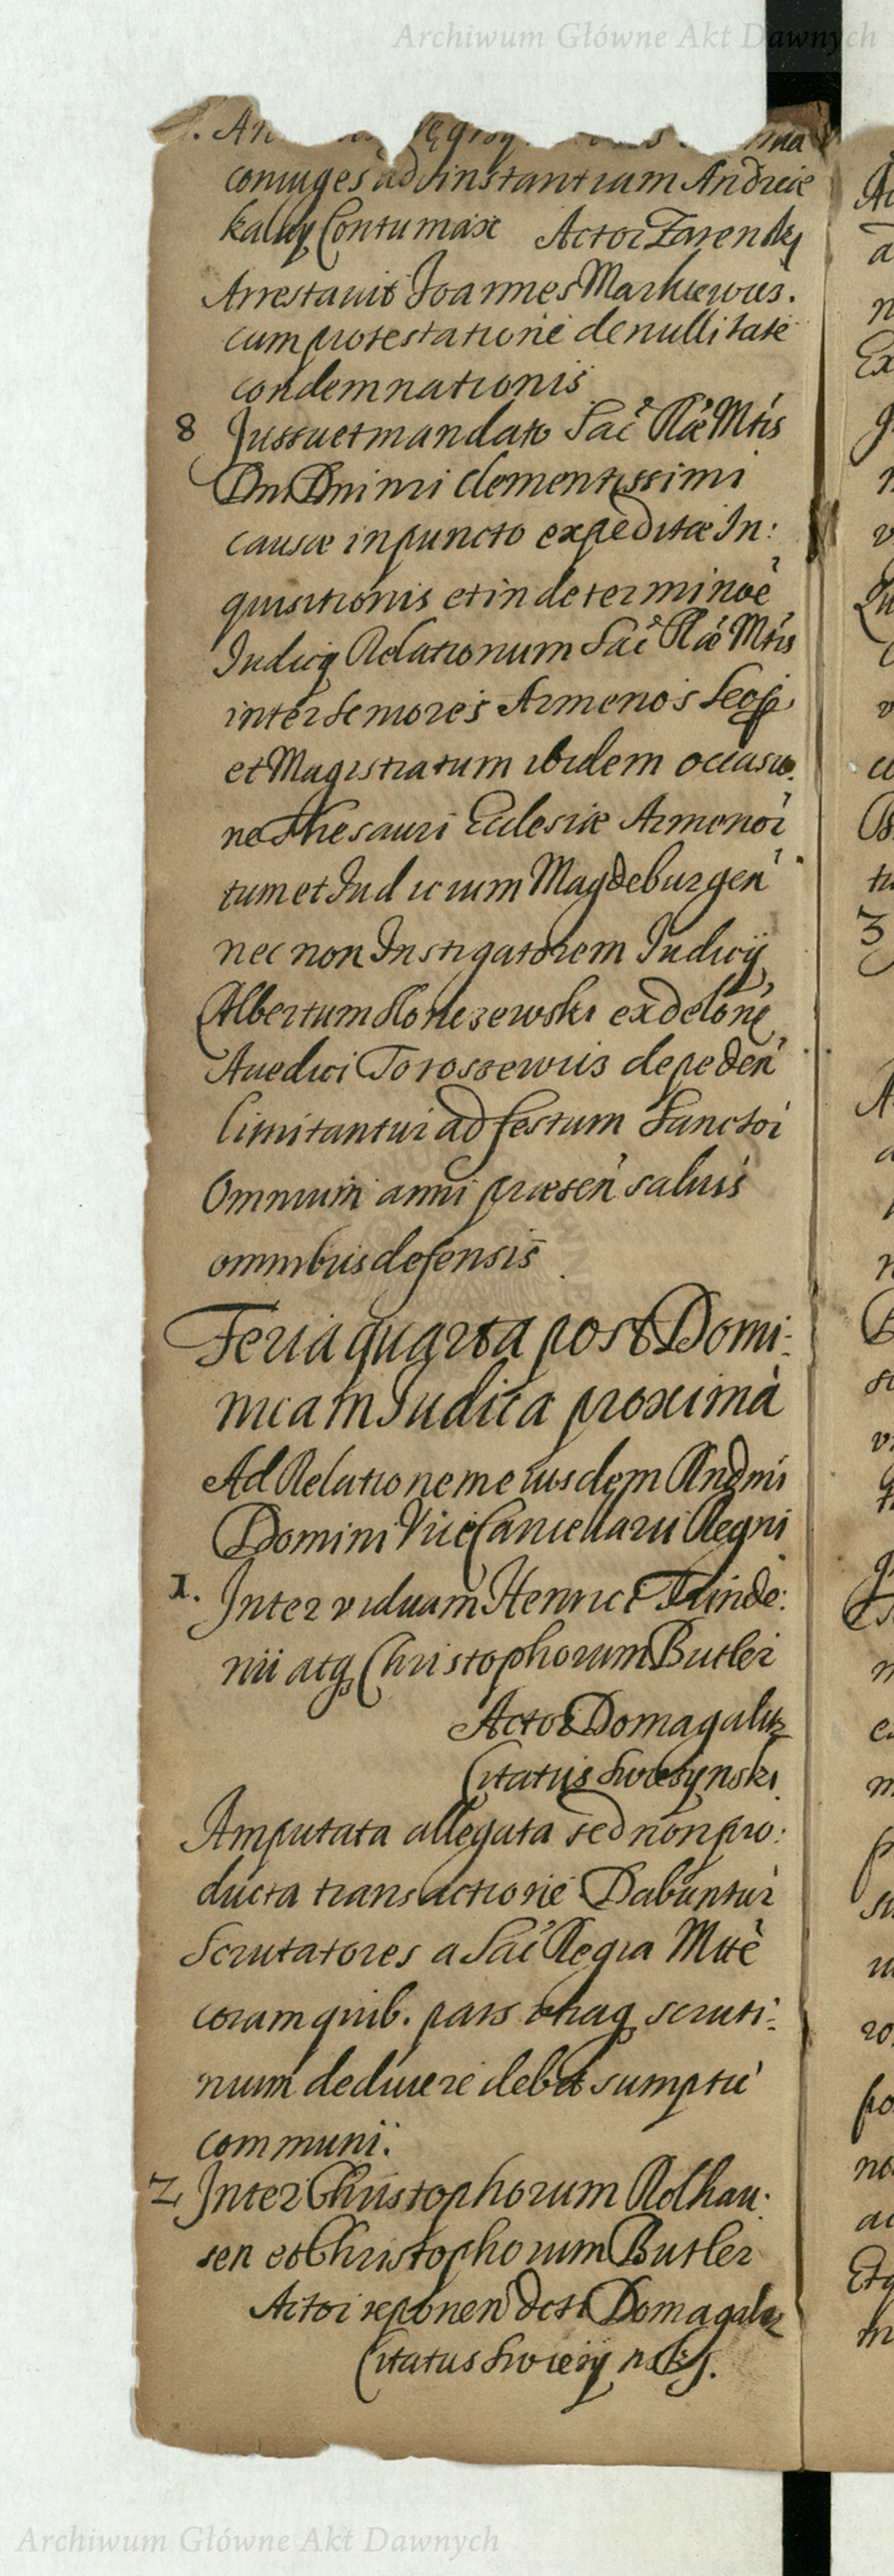 Archiwum Główne Akt Dawnych
coniuges ad instantiam Andreæ
Contumax Actor Zarensky
Arrestauit Joannes Markiewicz.
cum protestatione de nullitate
condemnationis
8 Jussu et mandato Sac̃ Ræ Mtis
Dni Dni nri Clementissimi
causæ in puncto expeditæ In:
quisitionis et in determinãoe
Judicÿ Relationum Sac̃ Ræ Mtis
inter Seniores Armenos Leop.
et Magistratum ibidem occasio.
ne Thesauri Ecclesiæ Armenor̃
tum et Judicium Magdeburgen̄
nec non Instigatorem Judicÿ
Albertum ex delõne
Auedici Torossewicz depeden̄
limitantur ad festum Sanctor̃
Omnium anni præsen̄ saluis
omnibus defensis
Feria quarta post Domi:
nicam Judica proximã
Ad Relationem eiusdem Rndmi
Domini ViceCancellarii Regni
1. Inter viduam Henrici
atq Christophorum Butler
Actor Domagalicz
Citatus Swiesÿnski
Amputata allegata sed non pro:
ducta transactione Dabuntur
Scrutatores a Sac̃ Regia Mttẽ
coram quib. pars vtraq scruti:
nium deducere debet sumptu
communi.
2 Inter Christophorum Rolhau:
sen et Christophorum Butler
Actor reponen dost Domagalicz
Citatus Swiesÿnskÿ.
Archiwum Główne Akt Dawnych